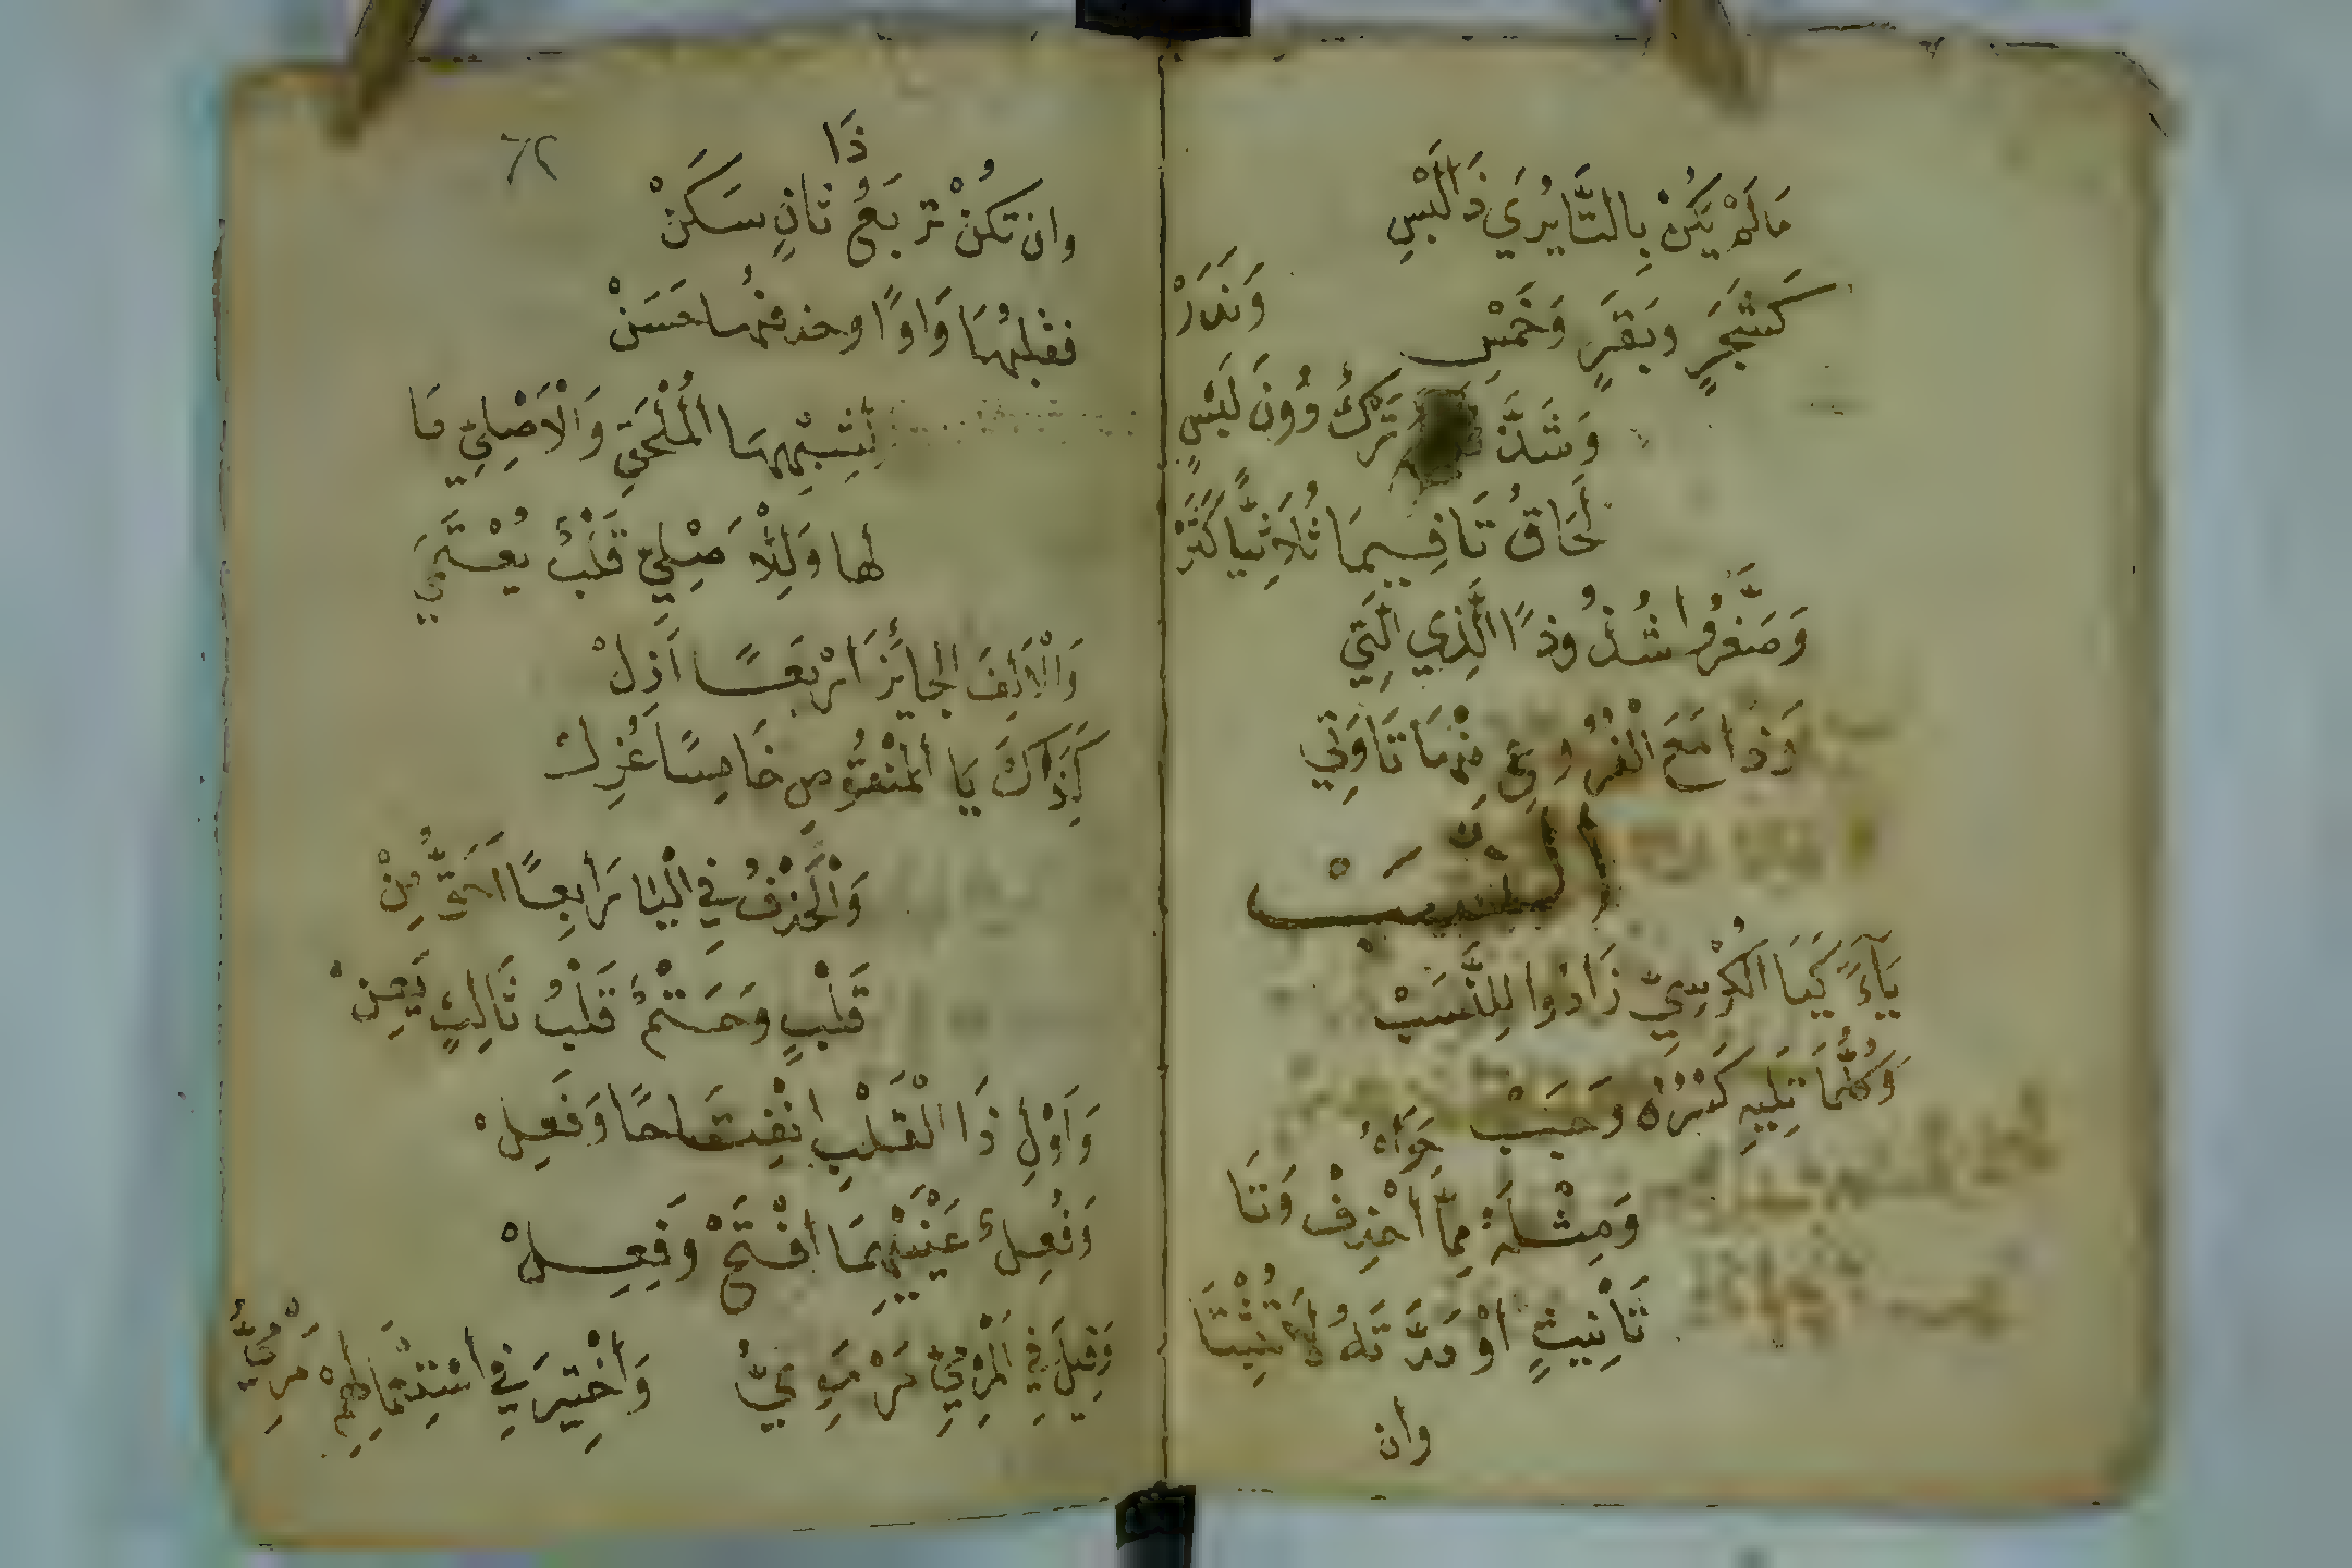 مَا لَمْ يَكُنْ بِالتَّا يُرَي ذَا لَبْسِ
كَشَجَرٍ وبَقَرٍ وَخَمْسِ
وَشَذَّ تَرْكٌ دُونَ لَبْسٍ وَنَدَرْ
لَحَاقُ تَا فِيمَا ثُلَاثِيًّا كَثَرْ
وَصَغَّرُوا شُذُوذًا الَّذِي الَّتِي
وَذَا مَعَ الْفُرُوعِ مِنْهَا تَا وَتِي
النَّسَبْ
يَآءً كَيَا الكُرْسِيِّ زَادُوا لِلنَّسَبْ
وَكُلُّمَا تَلِيهِ كَسْرُهُ وَجَبْ
وَمِثْلَهُ مِمَّا حَوَاهُ احْذِفْ وَتَا
تَأْنِيثٍ اوْ مَدَّتَهُ لَا تُثْبِتَا
وان
٦٢
وان تكُنْ تَرْبَعُ ذَا ثَانٍ سَكَنْ
فقلبُهَا وَاوًا وحذفُهَا حَسَنْ
لِشِبْهِهَا الْمُلْحَقِ وَالْاَصْلِيِّ مَا
لها وَلِلْاَصْلِيِّ قَلْبٌ يُعْتَمَي
وَالْاَلِفَ الجائِزَ اَرْبَعًا اَزِلْ
كَذَاكَ يَا الْمَنْقُوصِ خَامِسًا عُزِلْ
وَالْحَذْفُ فِي الْيَا رَابِعًا اَحَقُّ مِنْ
قَلْبٍ وَحَتْمٌ قَلْبُ ثَالِثٍ يَعِنْ
وَاَوْلِ ذَا الْقَلْبِ انْفِتَاحًا وَفَعِلْ
وَفُعِلٌ عَيْنَيْهِمَا افْتَحْ وَفِعِلْ
وَقِيلَ فِي الْمَرْمِيِّ مَرْمَوِيُّ وَاخْتِيرَ فِي اسْتِعْمَالِهِمْ مَرْمِيُّ